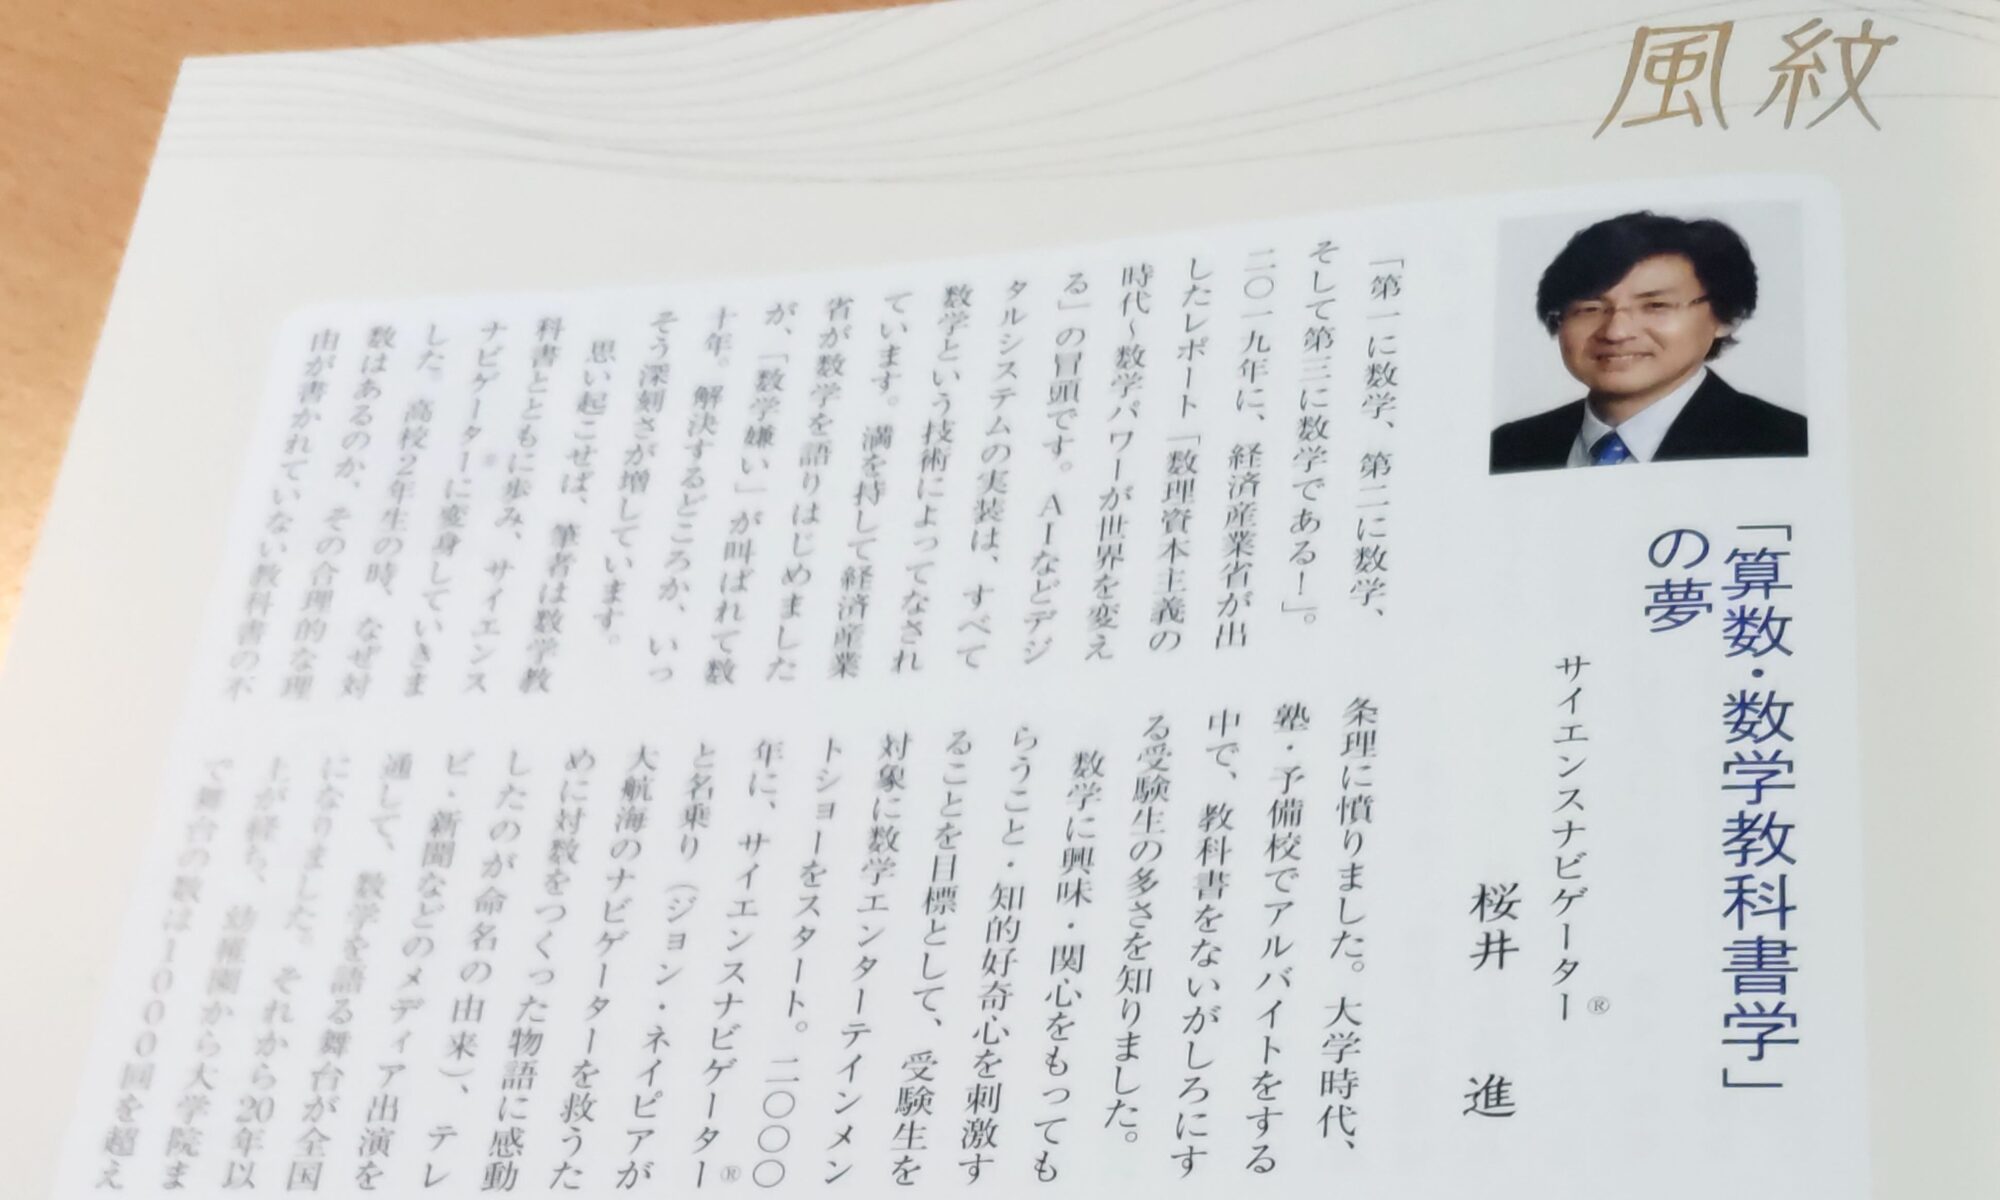 風紋
「算数・数学教科書学」
の夢
サイエンスナビゲーター®
桜井　進
「第一に数学、第二に数学、
そして第三に数学である！」。
二〇一九年に、経済産業省が出
したレポート「数理資本主義の
時代～数学パワーが世界を変え
る」の冒頭です。ＡＩなどデジ
タルシステムの実装は、すべて
数学という技術によってなされ
ています。満を持して経済産業
省が数学を語りはじめました
が、「数学嫌い」が叫ばれて数
十年。解決するどころか、いっ
そう深刻さが増しています。
思い起こせば、筆者は数学教
科書とともに歩み、サイエンス
ナビゲーター®に変身していきま
した。高校２年生の時、なぜ対
数はあるのか、その合理的な理
由が書かれていない教科書の不
条理に憤りました。大学時代、
塾・予備校でアルバイトをする
中で、教科書をないがしろにす
る受験生の多さを知りました。
数学に興味・関心をもっても
らうこと・知的好奇心を刺激す
ることを目標として、受験生を
対象に数学エンターテインメン
トショーをスタート。二〇〇〇
年に、サイエンスナビゲーター®
と名乗り（ジョン・ネイピアが
大航海のナビゲーターを救うた
めに対数をつくった物語に感動
したのが命名の由来）、テレ
ビ・新聞などのメディア出演を
通して、数学を語る舞台が全国
になりました。それから20年以
上が経ち、幼稚園から大学院ま
で舞台の数は１０００回を超え